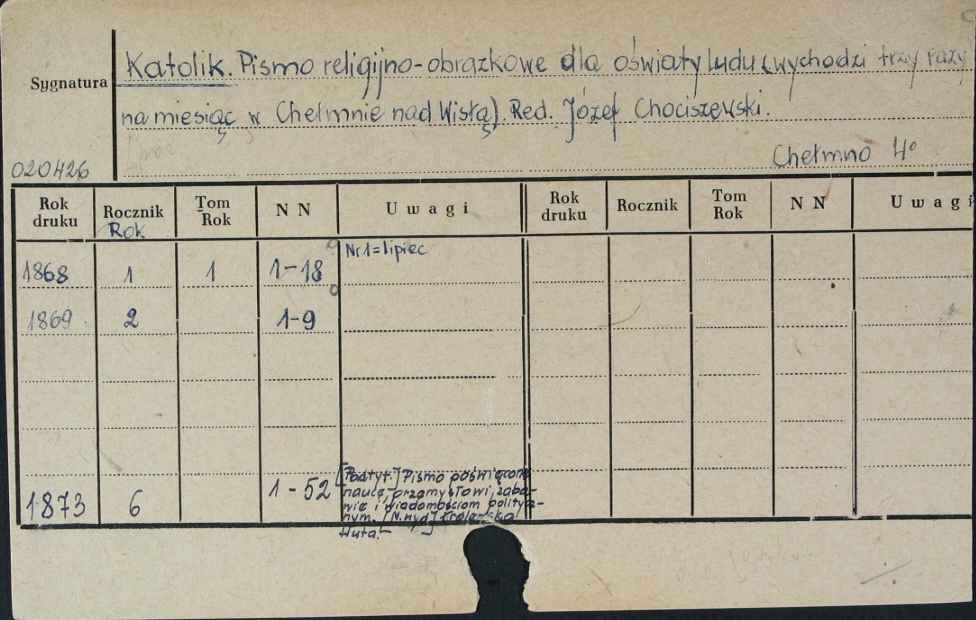 Sygnatura
Katolik. Pismo religijno-obrazkowe dla oświaty ludu (wychodzi trzy razy
na miesiąc w Chełmnie nad Wisłą). Red. Józef Chociszewski.
Chełmno 4°
020426
Rok druku Rocznik Tom Rok N N Uwagi Rok druku Rocznik Tom Rok N N Uwagi
Rok
Nr 1 = lipiec
1868 1 1 1-18
1869 2 1-9
1873 6 1-52
[Podtyt.] Pismo poświęcone
nauce, przemysłowi, zaba-
wie i wiadomościom polityc-
nym. [M. wyd.] Królewska
Huta.